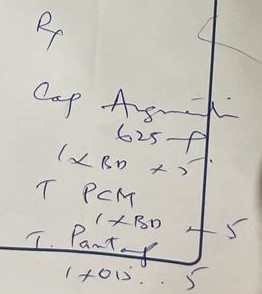 Rx
Cap Augmentin
625
1 x BD x 5
T PCM
1 x BD - 5
T. Pantop
1 x OD .. 5